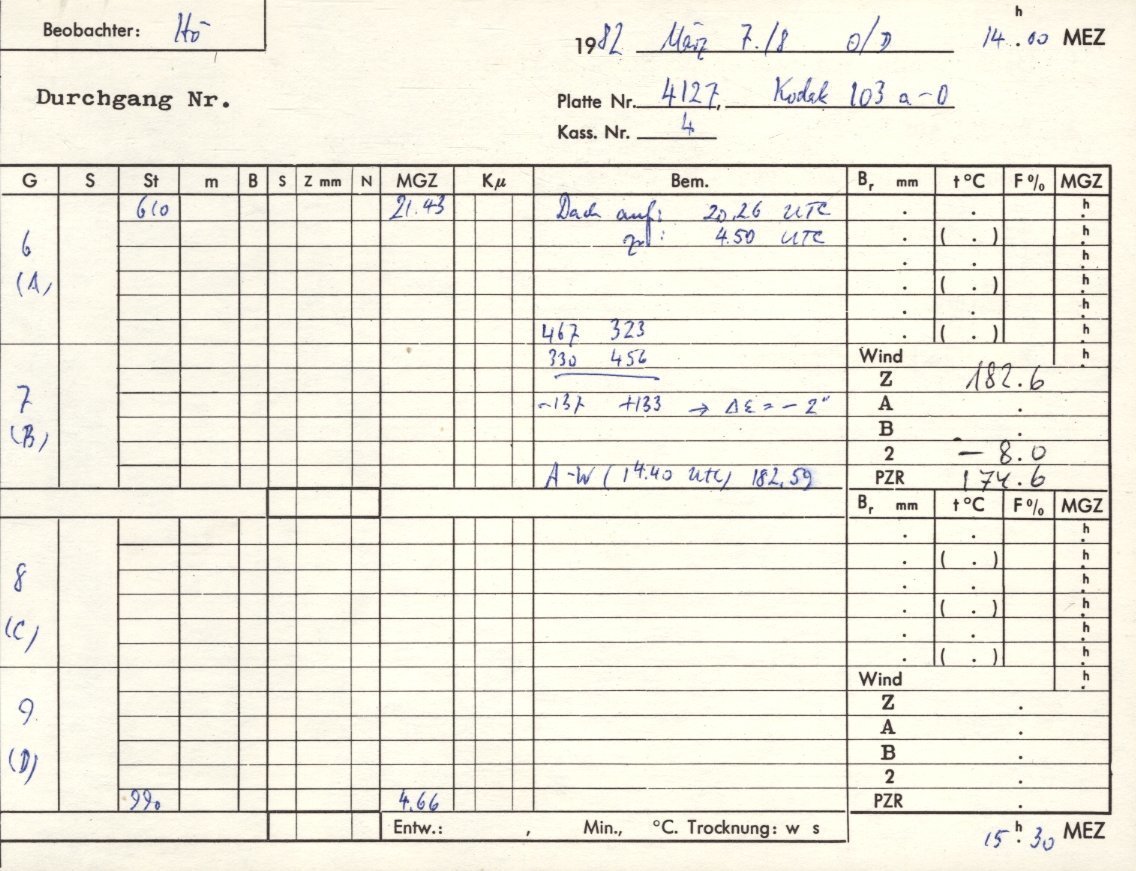 Beobachter: Hö
1982 März 7./8 O/D 14h.00 MEZ
Durchgang Nr.
Platte Nr. 4127, Kodak 103 a-O
Kass. Nr. 4
G S St m B S Z mm N MGZ Kµ Bem. Br mm t °C F % MGZ
610 21.43 Dach auf: 20.26 UTC . . h.
6 zu: 4.50 UTC . ( . ) h.
. . h.
(A) . ( . ) h.
. . h.
467 323 . ( . ) h.
330 456 Wind h.
7 Z 182.6
-137 +133 → Δε = - 2" A .
(B) B .
2 - 8.0
A-W (14.40 UTC) 182,59 PZR 174.6
Br mm t °C F % MGZ
. . h.
. ( . ) h.
8 . . h.
. ( . ) h.
(C) . . h.
. ( . ) h.
Wind h.
9 Z .
A .
(D) B .
2 .
990 4.66 PZR .
Entw.: , Min., °C. Trocknung: w s
15h.30 MEZ